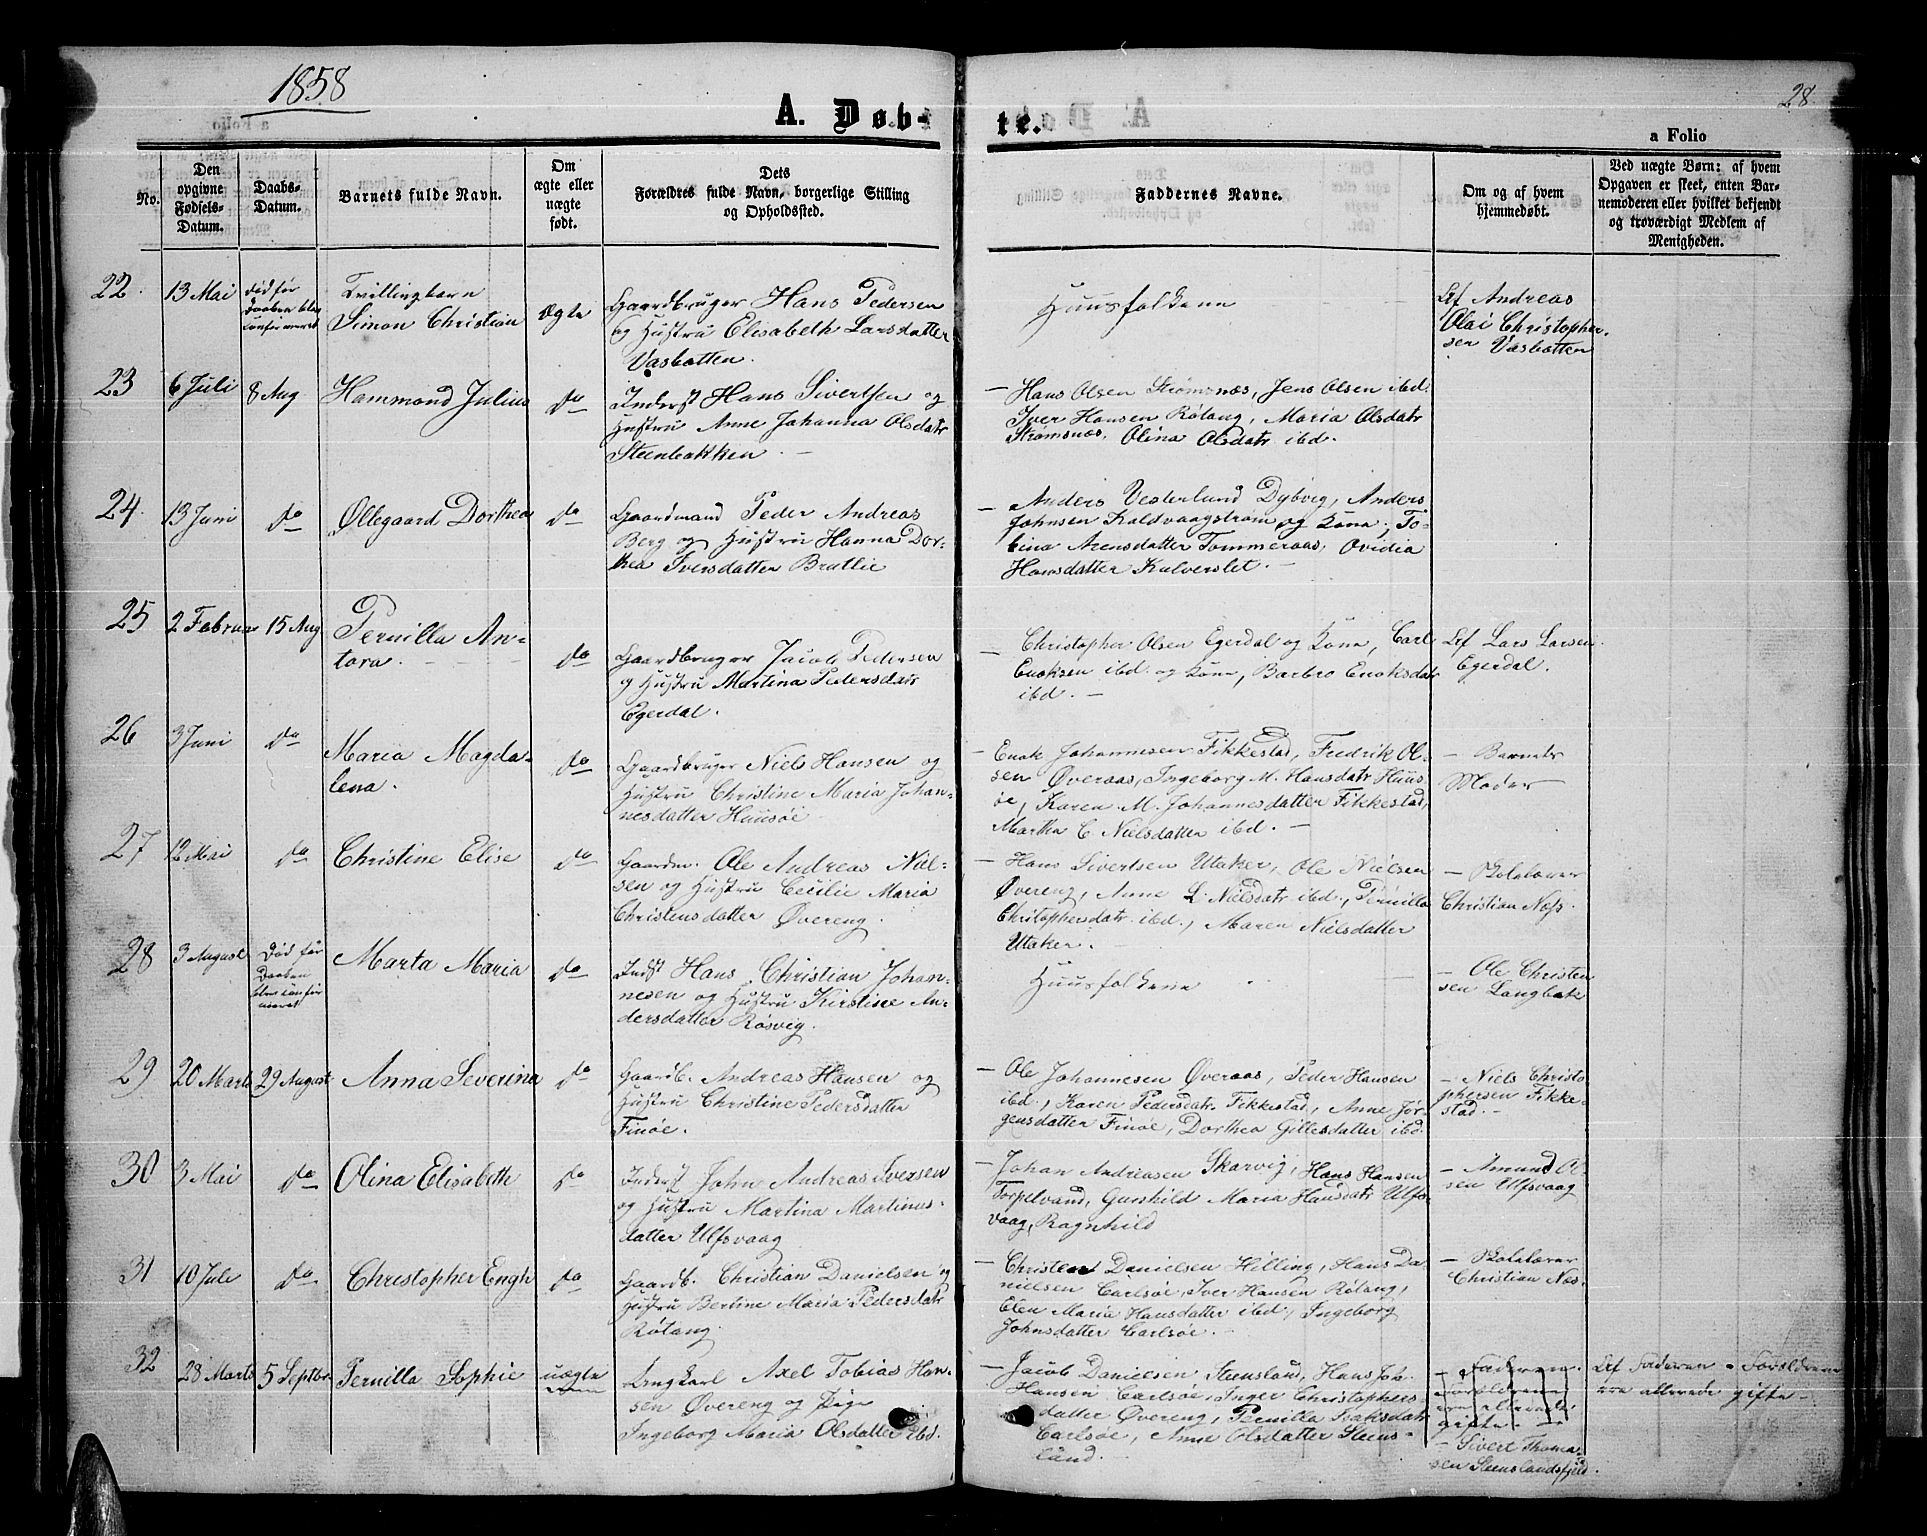 1858
28.
A. Døb-
te.
a Folio
No.
Den
opgivne
Fødsels-
Datum.
Daabs-
Datum.
Barnets fulde Navn.
Om
ægte eller
uægte
født.
Dets
Forældres fulde Navn, borgerlige Stilling
og Opholdssted.
Faddernes Navne.
Om og af hvem
hjemmedøbt.
Ved uægte Børn: af hvem
Opgaven er skeet, enten Bar-
nemoderen eller hvilket bekjendt
og troværdigt Medlem af
Menigheden.
22.
13 Mai
død før
Daaben blev
confirmeret
Tvillingbarn
Simon Christian
Ægte
Gaardbruger Hans Pedersen
og Hustru Elisabeth Larsdatter
Vasbotten.
Huusfolkene
Af Andreas
Olai Christopher-
sen Vasbotten
23
6 Juli
8 Aug
Hammond Julius
do
Inderst Hans Sivertsen og
Hustru Anne Johanna Olsdatr
Steenbakken
— Hans Olsen Strømsnæs, Jens Olsen ibd.
Iver Hansen Røtang, Maria Olsdatr
Strømsnæs, Olina Olsdatr ibd.
24.
13 Juni
do
Ollegaard Dorthea
do
Gaardmand Peder Andreas
Berg og Hustru Hanna Dor-
thea Iversdatter Bratlie
— Anders Vesterlund Dybvig, Anders
Johnsen Kaldvaagstrøm og Kone, To-
bina Arensdatter Tommeraas, Ovidia
Hansdatter Kalverslet.
25
2 Februar
15 Aug
Pernilla An-
tora.
do
Gaardbruger Jacob Pedersen
og Hustru Martina Pedersdatr
Egerdal.
— Christopher Olsen Egerdal og Kone, Carl
Enoksen ibd. og Kone, Barbro Enoksdatr
ibd. —
Af Lars Larsen
Egerdal.
26
3 Juni
do
Maria Magda-
lena.
do
Gaardbruger Niels Hansen og
Hustru Christine Maria Johan-
nesdatter Huusøe
— Enok Johannesen Fikkestad, Fredrik Ol-
sen Øveraas, Ingeborg M. Hansdatr Huus-
øe, Karen M. Johannesdatter Fikkestad,
Martha C. Nielsdatter ibd. —
— Barnets
Moder
27
12 Mai
do
Christine Elise
do
Gaardm. Ole Andreas Niel-
sen og Hustru Cecilie Maria
Christensdatter Øvereng.
— Hans Sivertsen Utaker, Ole Nielsen
Øvereng, Anne L. Nielsdatr ibd., Pernilla
Christophersdatr. ibd., Maren Nielsdatter
Utaker. —
— Skolelærer
Christian Næss.
28
3 August
Død før
Daaben
blev confir-
meret
Marta Maria
do
Indst Hans Christian Johan-
nesen og Hustru Kirstine An-
dersdatter Røsvig.
Huusfolkene
— Ole Christen
sen Langbak
29
20 Marts
29 August
Anna Severina
do
Gaardb. Andreas Hansen og
Hustru Christine Pedersdatter
Finøe.
— Ole Johannesen Øveraas, Peder Hansen
ibd., Karen Pedersdatr. Fikkestad, Anne Jør-
gensdatter Finøe, Dorthea Gillesdatter ibd.
— Niels Christo
phersen Fikke-
stad. —
30
3 Mai
do
Olina Elisabeth
do
Inderst John Andreas Iversen
og Hustru Martina Martinus-
datter Ulfsvaag
— Johan Andreasen Skarvig, Hans Hansen
Torpelvand, Gunhild Maria Hansdatr Ulfs-
vaag, Ragnhild
— Amund Ol-
sen Ulfsvaag
31
10 Juli
do
Christopher Engh
do
Gaardb. Christian Danielsen og
Hustru Bertine Maria Pedersdatr
Røtang.
— Christen Danielsen Hilling, Hans Da-
nielsen Carlsøe, Iver Hansen Røtang,
Elen Maria Hansdatter ibd., Ingeborg
Johnsdatter Carlsøe. —
— Skolelærer
Christian Næs
32
28 Marts
5 Septbr
Pernilla Sophie
uægte
Ungkarl Axel Tobias Han-
sen Øvereng og Pige
Ingeborg Maria Olsdatter ibd.
— Jacob Danielsen Steensland, Hans Joh.
Hansen Carlsøe, Inger Christophers-
datter Øvereng, Pernilla Isaksdatr
Carlsøe, Anne Olsdatter Steens-
land.
— Faderen.
Forældrene
ere allerede
gifte. —
— Sivert Thoma-
sen Steenslandsfjeld.
Af Faderen. Forældrene
ere allerede gifte. —